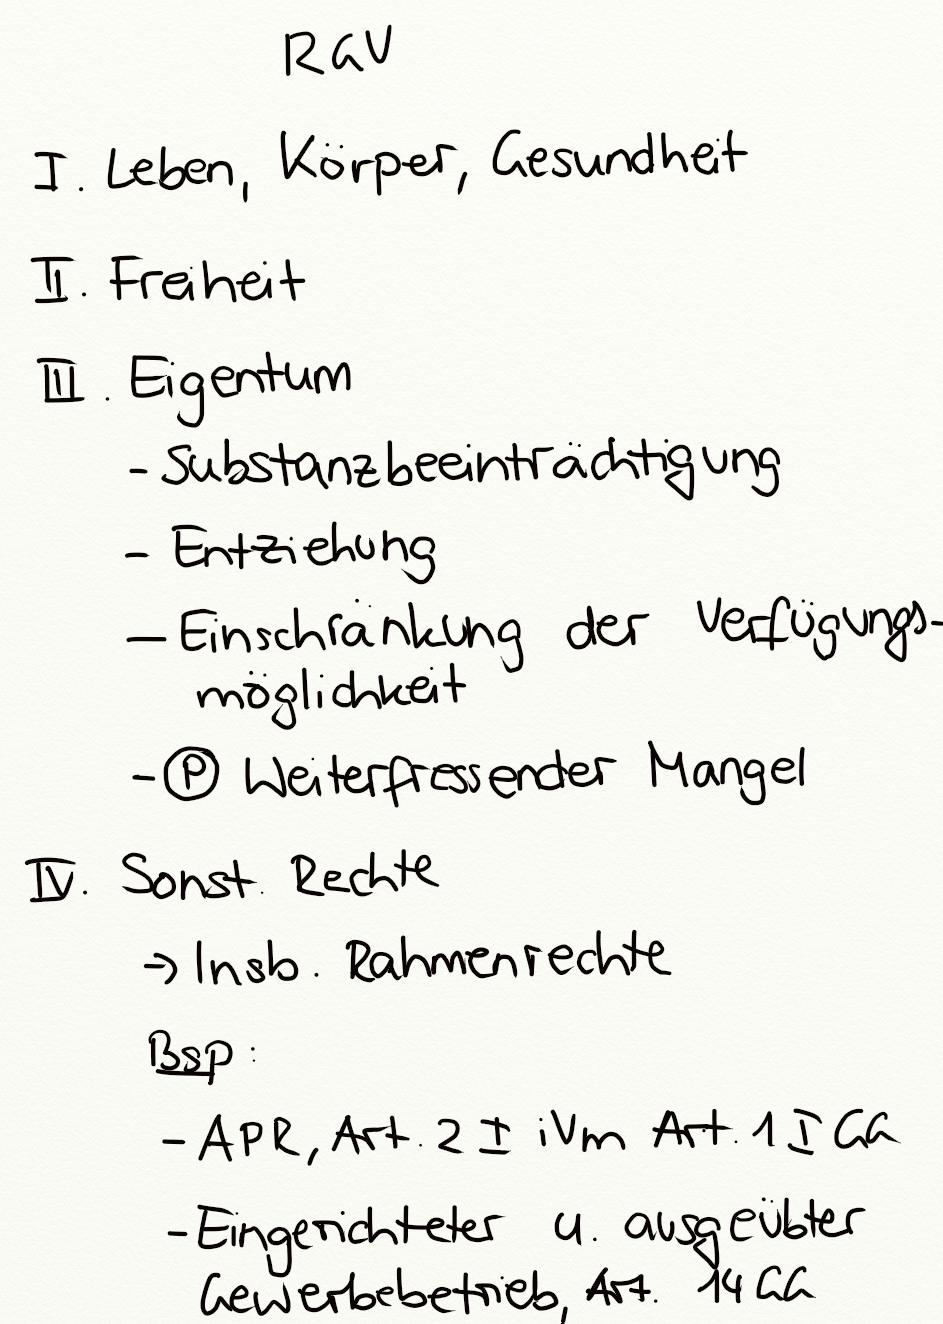 RGV
I. Leben, Körper, Gesundheit
II. Freiheit
III. Eigentum
- Substanzbeeinträchtigung
- Entziehung
- Einschränkung der Verfügungs-
möglichkeit
- Ⓟ Weiterfressender Mangel
IV. Sonst. Rechte
→ Insb. Rahmenrechte
Bsp:
- APR, Art. 2 I iVm Art. 1 I GG
- Eingerichteter u. ausgeübter
Gewerbebetrieb, Art. 14 GG